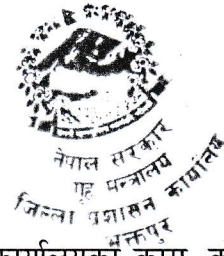 नेपाल सरकार
गृह मन्त्रालय
जिल्ला प्रशासन कार्यालय
भक्तपुर